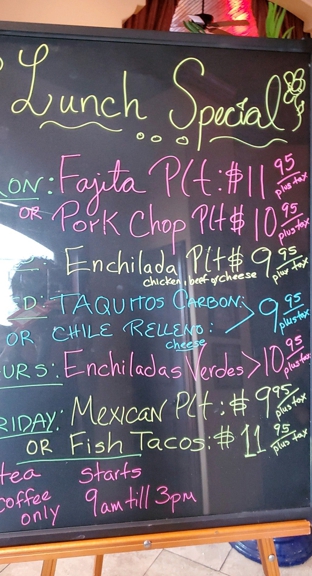 Lunch Special
ON: Fajita Plt: $11.95 plus tax
OR Pork Chop Plt $10.95 plus tax
E: Enchilada Plt $9.95 plus tax
chicken, beef or cheese
ED: TAQUITOS CARBON:
OR CHILE RELLENO: > 9.95 plus tax
cheese
URS: Enchiladas Verdes > 10.95 plus tax
RIDAY: MEXICAN Plt: $9.95 plus tax
OR Fish Tacos: $11.95 plus tax
tea Starts
coffee 9am till 3pm
only